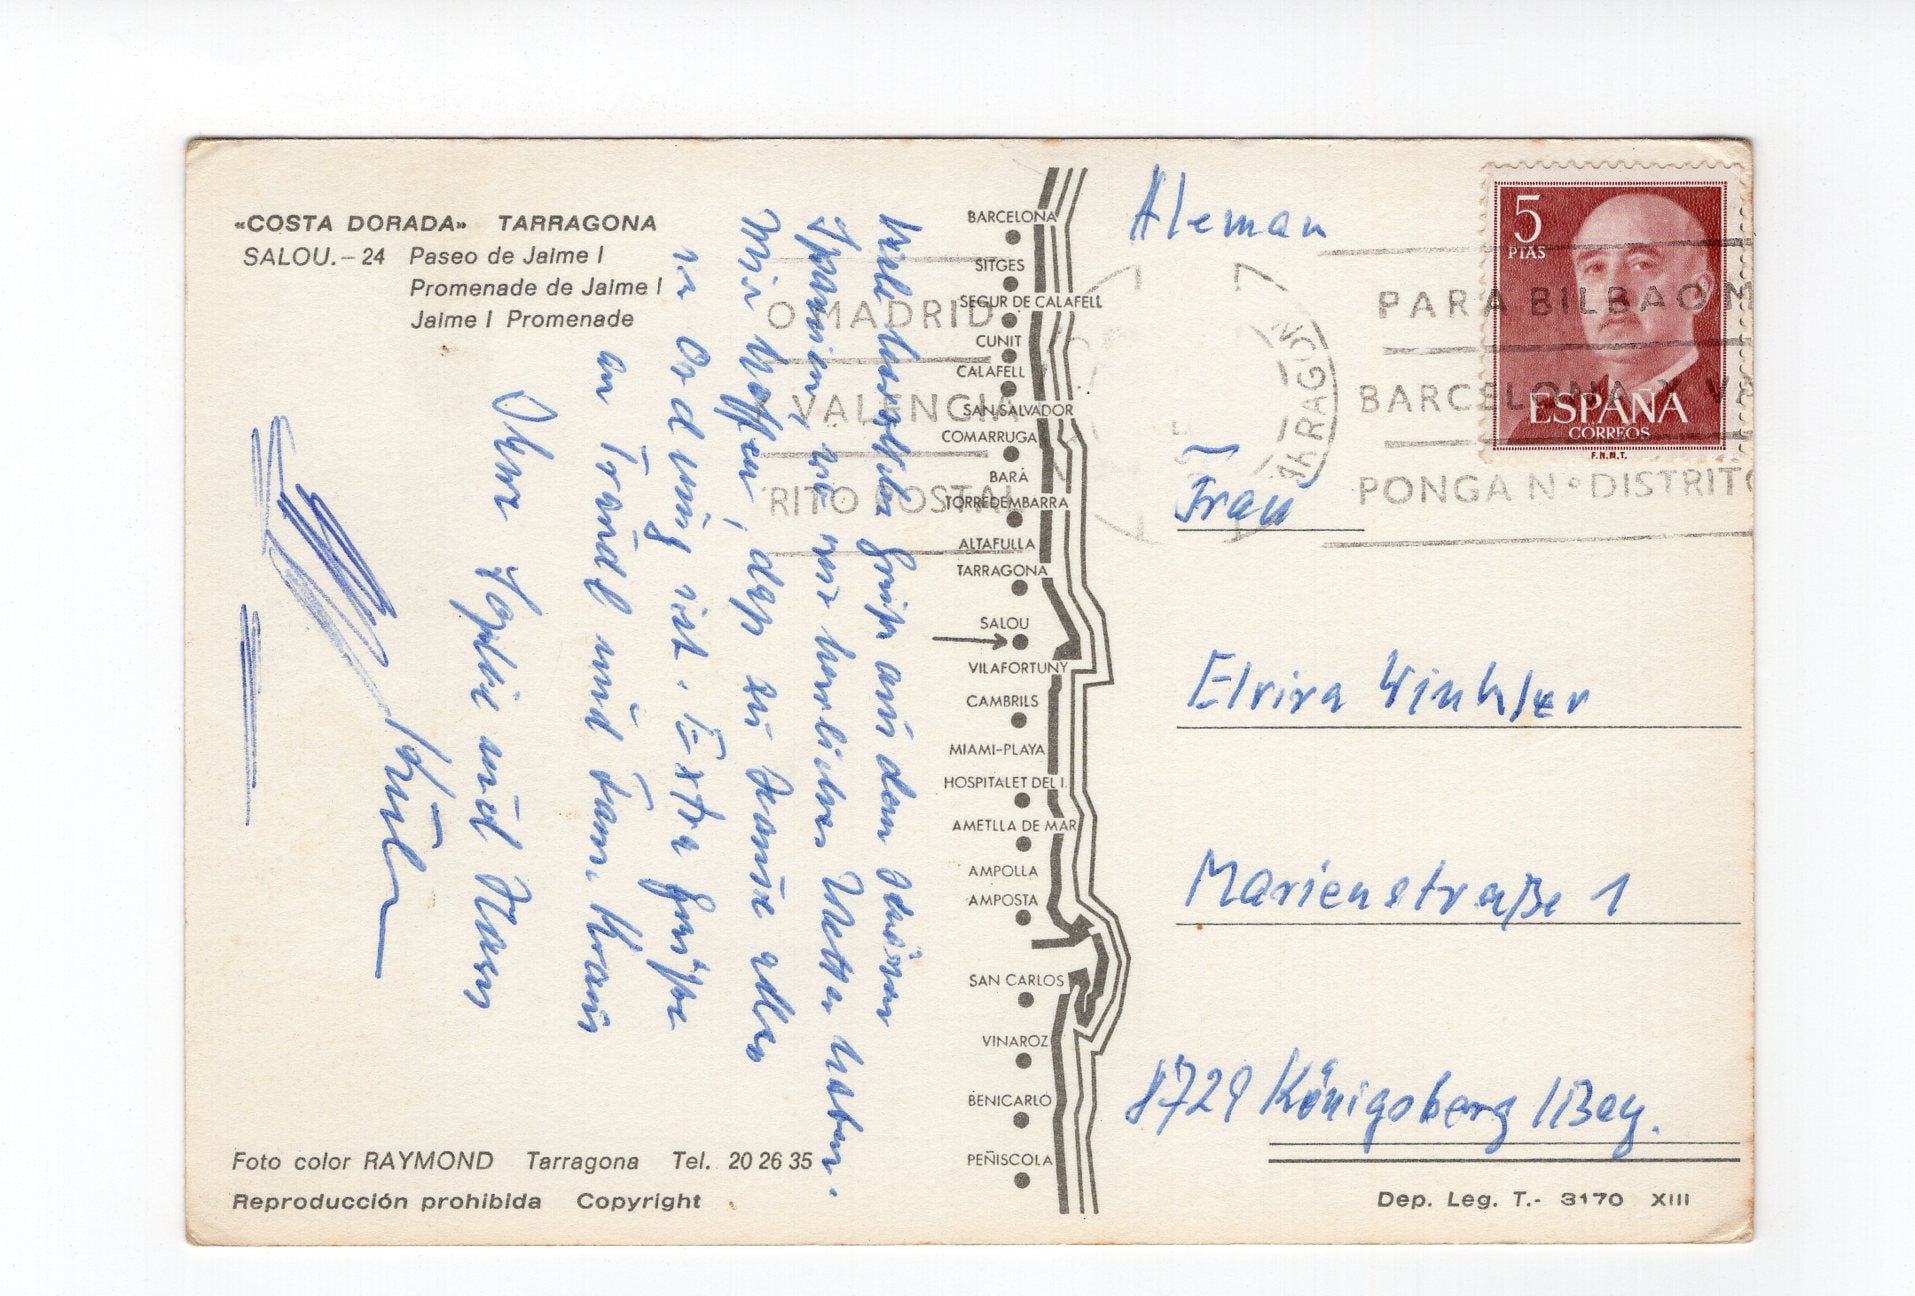 «COSTA DORADA» TARRAGONA
SALOU.- 24 Paseo de Jaime I
Promenade de Jaime I
Jaime I Promenade
Viele herzliche Grüße aus dem schönen
Spanien, wo wir herrliches Wetter haben.
Wir hoffen, daß zu Hause alles
in Ordnung ist. Extra Grüße
an Traudl und Fam. Kraus
Ihre und Hans
O MADRID
VALENCIA
RITO POSTAL
BARCELONA
SITGES
SEGUR DE CALAFELL
CUNIT
CALAFELL
SAN SALVADOR
COMARRUGA
BARÁ
TORREDEMBARRA
ALTAFULLA
TARRAGONA
SALOU
VILAFORTUNY
CAMBRILS
MIAMI-PLAYA
HOSPITALET DEL I.
AMETLLA DE MAR
AMPOLLA
AMPOSTA
SAN CARLOS
VINAROZ
BENICARLÓ
PEÑISCOLA
Aleman
5
PTAS
ESPAÑA
CORREOS
F.N.M.T.
PARA BILBAO M
BARCELONA Y VA
PONGA Nº DISTRITO
Frau
Elvira Winkler
Marienstraße 1
8729 Königsberg /Bay.
Foto color RAYMOND Tarragona Tel. 20 26 35
Reproducción prohibida Copyright
Dep. Leg. T.- 3170 XIII